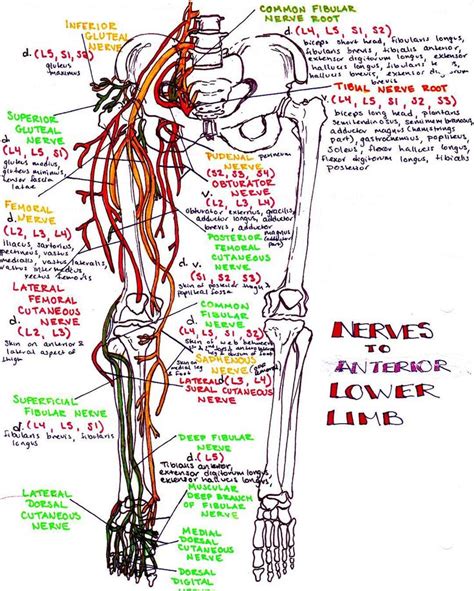 INFERIOR
GLUTEAL
NERVE
d. (L5, S1, S2)
gluteus
maximus
COMMON FIBULAR
NERVE ROOT
d. (L4, L5, S1, S2)
biceps short head, fibularis longus,
fibularis brevis, tibialis anterior,
extensor digitorum longus, extensor
hallucis longus, fibularis
hallucis brevis, extensor
brevis
TIBIAL NERVE ROOT
(L4, L5, S1, S2, S3)
biceps long head, plantaris
semitendinosus, semimembranosus,
adductor magnus (hamstrings
part), gastrocnemius, popliteus,
soleus, flexor hallucis longus
flexor digitorum longus, tibialis
posterior
SUPERIOR
GLUTEAL
NERVE
d.
(L4, L5, S1)
gluteus medius,
gluteus minimus,
tensor fascia
latae
PUDENAL perineum
NERVE
(S2, S3, S4)
OBTURATOR
NERVE
v.
(L2, L3, L4)
obturator externus, gracilis,
adductor longus, adductor
brevis, adductor
magnus
FEMORAL
NERVE
d.
(L2, L3, L4)
iliacus, sartorius,
pectineus, vastus
medialis, vastus lateralis,
vastus intermedius
rectus femoris
POSTERIOR
FEMORAL
CUTANEOUS
NERVE
d.
(S1, S2, S3)
skin of posterior thigh &
popliteal fossa
LATERAL
FEMORAL
CUTANEOUS
d. NERVE
(L2, L3)
skin on anterior &
lateral aspect of
thigh
COMMON
FIBULAR
NERVE
d.
(L4, L5, S1, S2)
skin of web between
SAPHENOUS
NERVE
skin on
medial
leg &
foot
(L3, L4)
LATERAL
SURAL CUTANEOUS
NERVE
NERVES
TO
ANTERIOR
LOWER
LIMB
SUPERFICIAL
FIBULAR NERVE
d. (L4, L5, S1)
fibularis brevis, fibularis
longus
DEEP FIBULAR
NERVE
d. (L5)
Tibialis anterior,
extensor digitorum longus,
extensor hallucis longus,
MUSCULAR
DEEP BRANCH
OF FIBULAR
NERVE
LATERAL
DORSAL
CUTANEOUS
NERVE
MEDIAL
DORSAL
CUTANEOUS
NERVE
DORSAL
DIGITAL
NERVE